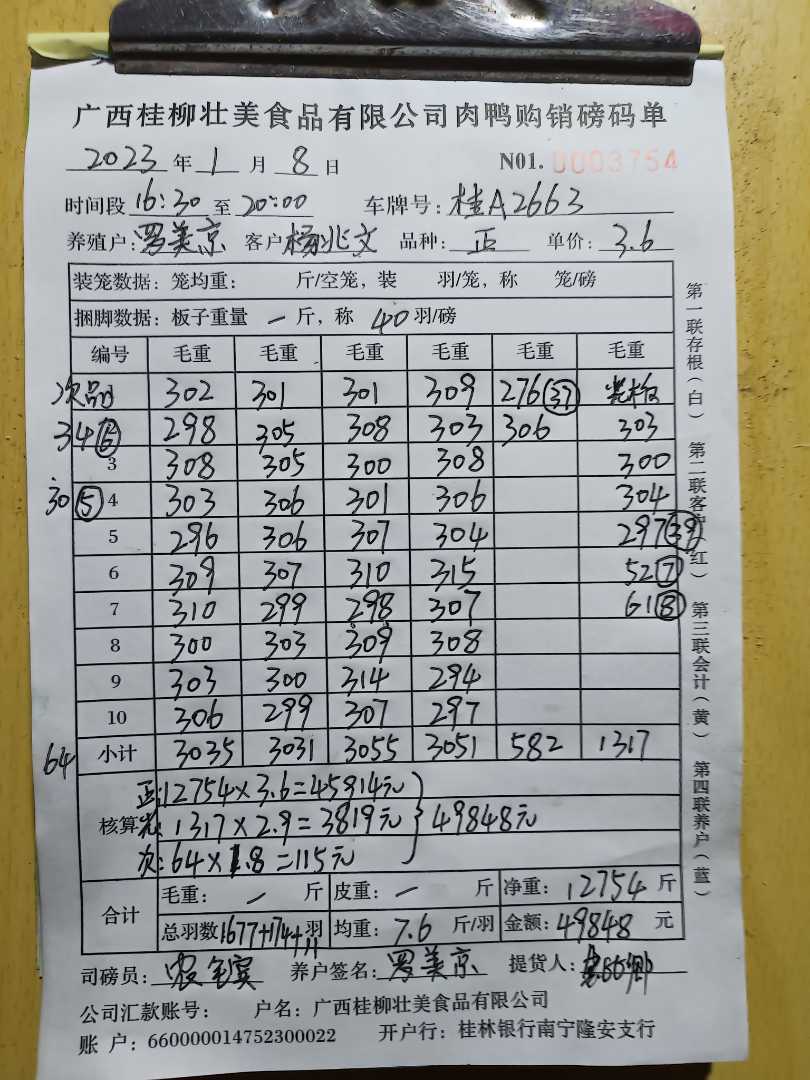 广西桂柳壮美食品有限公司肉鸭购销磅码单
2023 年 1 月 8 日 N01. 0003754
时间段 16:30 至 20:00 车牌号: 桂A2663
养殖户: 罗美京 客户 杨兆文 品种: 正 单价: 3.6
装笼数据: 笼均重: 斤/空笼, 装 羽/笼, 称 笼/磅
捆脚数据: 板子重量 一 斤, 称 40 羽/磅
编号 毛重 毛重 毛重 毛重 毛重 毛重
次品 302 301 301 309 276 37
34 6 298 305 308 303 306 303
3 308 305 300 308 300
30 5 4 303 306 301 306 304
5 296 306 307 304 297 39
6 309 307 310 315 52 7
7 310 299 298 307 61 8
8 300 303 309 308
9 303 300 314 294
10 306 299 307 297
64 小计 3035 3031 3055 3051 582 1317
核算 正:12754×3.6=45914元
1317×2.9=3819元 49848元
次:64×1.8=115元
合计 毛重: 一 斤 皮重: 一 斤 净重: 12754 斤
总羽数 1677+174+11 羽 均重: 7.6 斤/羽 金额: 49848 元
司磅员: 养户签名: 罗美京 提货人:
公司汇款账号: 户名: 广西桂柳壮美食品有限公司
账 户: 660000014752300022 开户行: 桂林银行南宁隆安支行
第一联存根(白) 第二联客户(红) 第三联会计(黄) 第四联养户(蓝)